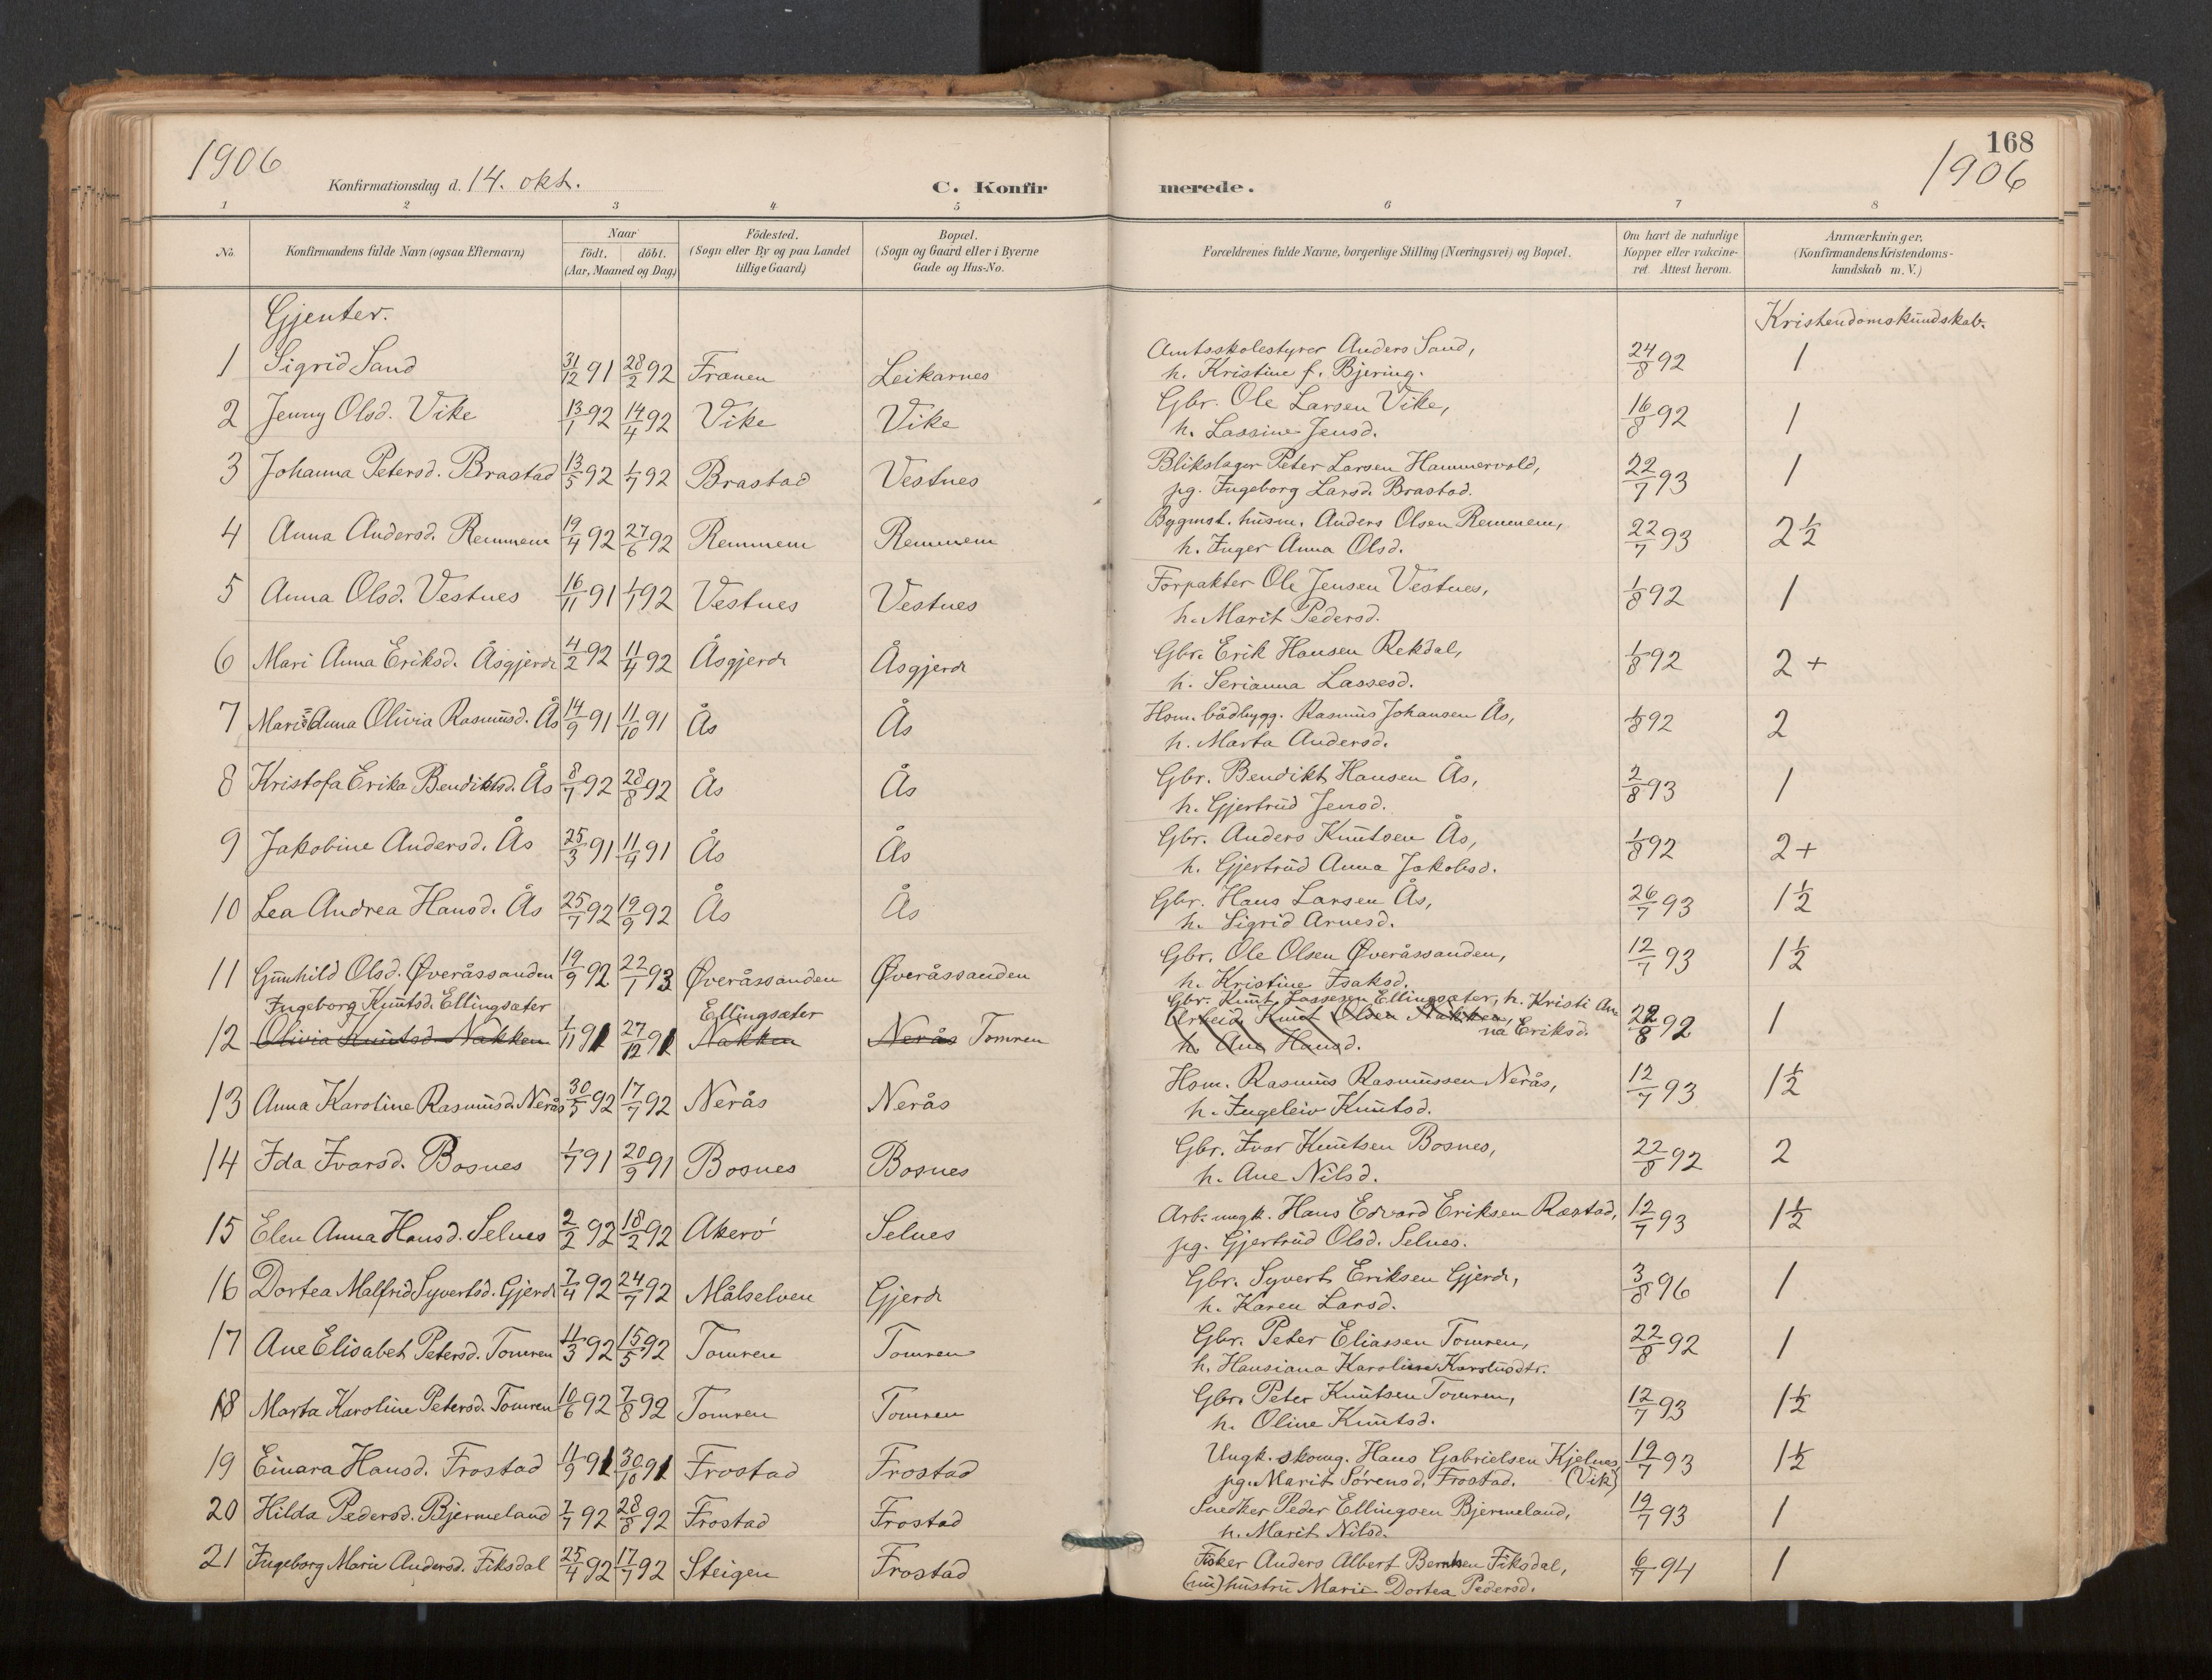 1906
Konfirmationsdag d. 14. okt.
C. Konfirmerede.
168
1906
1 2 3 4 5 6 7 8
No. Konfirmandens fulde Navn (ogsaa Efternavn) Naar født. døbt. (Aar, Maaned og Dag) Fødested. (Sogn eller By og paa Landet tillige Gaard) Bopæl. (Sogn og Gaard eller i Byerne Gade og Hus-No. Forældrenes fulde Navne, borgerlige Stilling (Næringsvei) og Bopæl. Om havt de naturlige Kopper eller vaccineret. Attest herom. Anmærkninger. (Konfirmandens Kristendomskundskab m. V.)
Gjenter. Kristendomskundskab.
1 Sigrid Sand 31/12 91 28/2 92 Frænen Leikarnes Amtsskolestyrer Anders Sand, 24/8 92 1
h. Kristine f. Bjering.
2 Jenny Olsd. Vike 13/1 92 14/4 92 Vike Vike Gbr. Ole Larsen Vike, 16/8 92 1
h. Lassine Jensd.
3 Johanna Petersd. Brastad 13/5 92 1/7 92 Brastad Vestnes Blikslager Peter Larsen Hammervold, 22/7 93 1
pg. Ingeborg Larsd. Brastad.
4 Anna Andersd. Remmem 19/4 92 27/6 92 Remmem Remmem Bygmst. husm. Anders Olsen Remmem, 22/7 93 2½
h. Inger Anna Olsd.
5 Anna Olsd. Vestnes 16/11 91 1/1 92 Vestnes Vestnes Forpakter Ole Jensen Vestnes, 1/8 92 1
h. Marit Pedersd.
6 Mari Anna Eriksd. Åsgjerde 4/2 92 11/4 92 Åsgjerde Åsgjerde Gbr. Erik Hansen Rekdal, 1/8 92 2 +
h. Serianna Lassesd.
7 Mari Anna Olivia Rasmusd. Ås 14/9 91 11/10 91 Ås Ås Hsm. bådbygg. Rasmus Johansen Ås, 1/8 92 2
h. Marta Andersd.
8 Kristofa Erika Bendiktsd. Ås 8/7 92 28/8 92 Ås Ås Gbr. Bendikt Hansen Ås, 2/8 93 1
h. Gjertrud Jensd.
9 Jakobine Andersd. Ås 25/3 91 11/4 91 Ås Ås Gbr. Anders Knutsen Ås, 1/8 92 2+
h. Gjertrud Anna Jakobsd.
10 Lea Andrea Hansd. Ås 25/7 92 19/9 92 Ås Ås Gbr. Hans Larsen Ås, 26/7 93 1½
h. Sigrid Arnesd.
11 Gunhild Olsd. Øveråssanden 19/9 92 22/1 93 Øveråssanden Øveråssanden Gbr. Ole Olsen Øveråssanden, 12/7 93 1½
h. Kristine Isaksd.
Ingeborg Knutsd. Ellingsæter Ellingsæter Gbr. Knut Lassesen Ellingsæter, h. Kristi An
12 Olivia Knutsd. Nakken 1/11 91 27/12 91 Nakken Nerås Tomren Arbeid. Knut Olsen Nakken, na Eriksd. 22/8 92 1
h. Ane Hansd.
13 Anna Karoline Rasmusd. Nerås 30/5 92 17/7 92 Nerås Nerås Hsm. Rasmus Rasmussen Nerås, 12/7 93 1½
h. Ingeleiv Knutsd.
14 Ida Ivarsd. Bosnes 1/7 91 20/9 91 Bosnes Bosnes Gbr. Ivar Knutsen Bosnes, 22/8 92 2
h. Ane Nilsd.
15 Elen Anna Hansd. Selnes 2/2 92 18/2 92 Akerö Selnes Arb. ungk. Hans Edvard Eriksen Røstad, 12/7 93 1½
pg. Gjertrud Olsd. Selnes.
16 Dortea Malfrid Syvertsd. Gjerde 7/4 92 24/7 92 Målselven Gjerde Gbr. Syvert Eriksen Gjerde, 3/8 96 1
h. Karen Larsd.
17 Ane Elisabet Petersd. Tomren 11/3 92 15/5 92 Tomren Tomren Gbr. Peter Eliassen Tomren, 22/8 92 1
h. Hansiana Karoline Karolusdtr.
18 Marta Karoline Petersd. Tomren 10/6 92 7/8 92 Tomren Tomren Gbr. Peter Knutsen Tomren, 12/7 93 1½
h. Oline Knutsd.
19 Einara Hansd. Frostad 11/9 91 30/10 91 Frostad Frostad Ungk. skomg. Hans Gabrielsen Kjelnes 12/7 93 1½
pg. Marit Sörensd. Frostad. (Vik)
20 Hilda Pedersd. Bjermeland 7/7 92 28/8 92 Frostad Frostad Snedker Peder Ellingsen Bjermeland, 12/7 93 1
h. Marit Nilsd.
21 Ingeborg Marie Andersd. Fiksdal 25/4 92 17/7 92 Steigen Frostad Fisker Anders Albert Berntsen Fiksdal, 6/7 94 1
(nu) hustru Marie Dortea Pedersd.